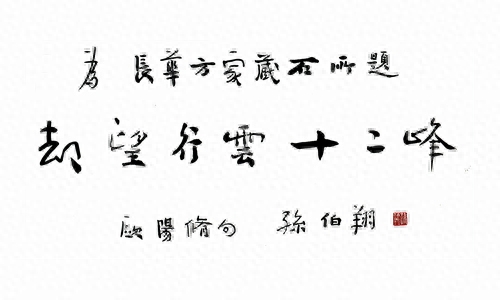 為 長華方家藏石所題
却望行雲十二峰
歐陽脩句 孫伯翔